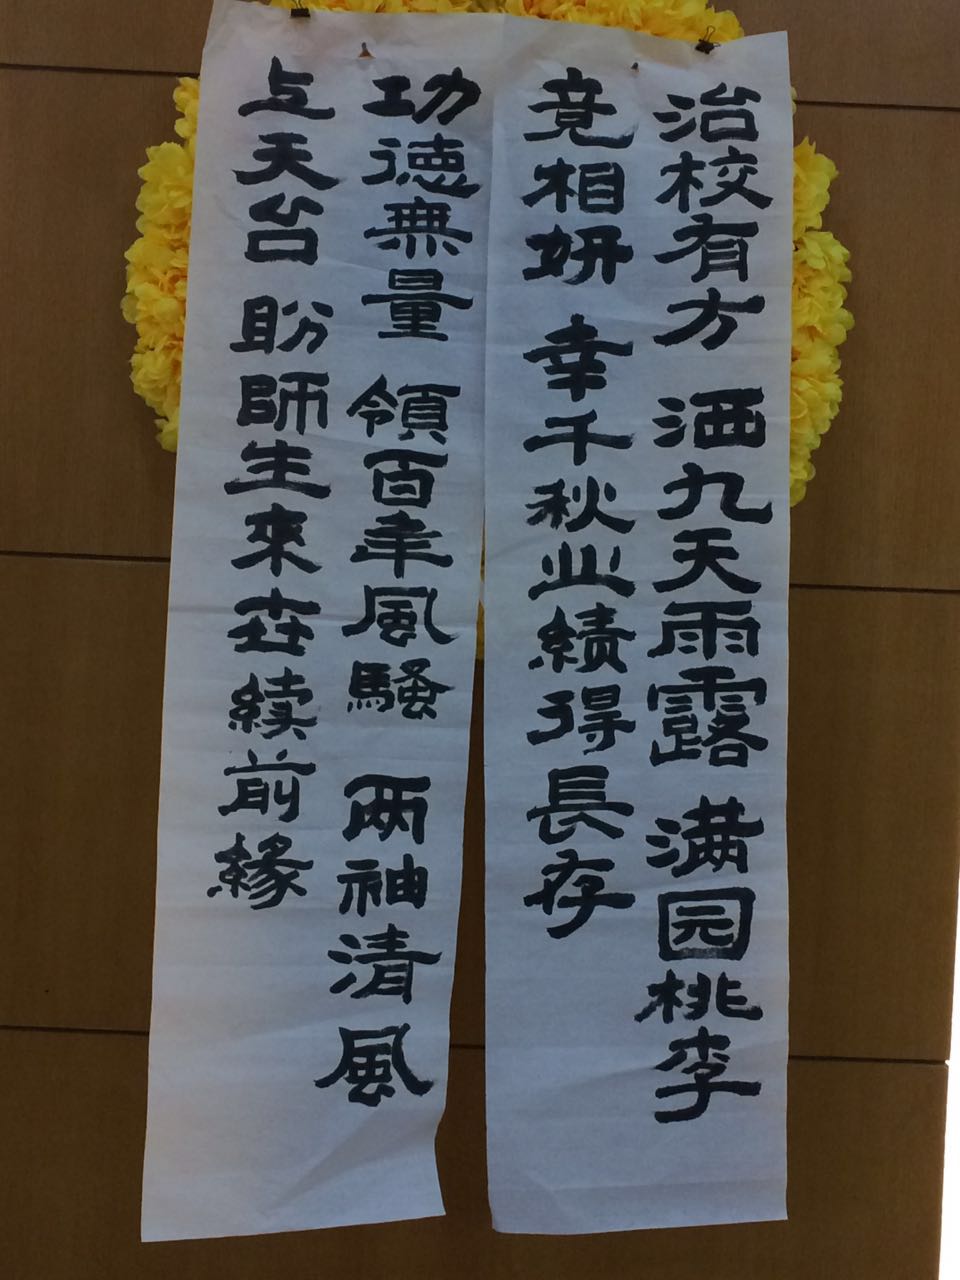 治校有方 洒九天雨露 满园桃李
竟相妍 幸千秋业績得長存
功德無量 領百年風騷 两袖清風
上天台 盼師生來世續前緣